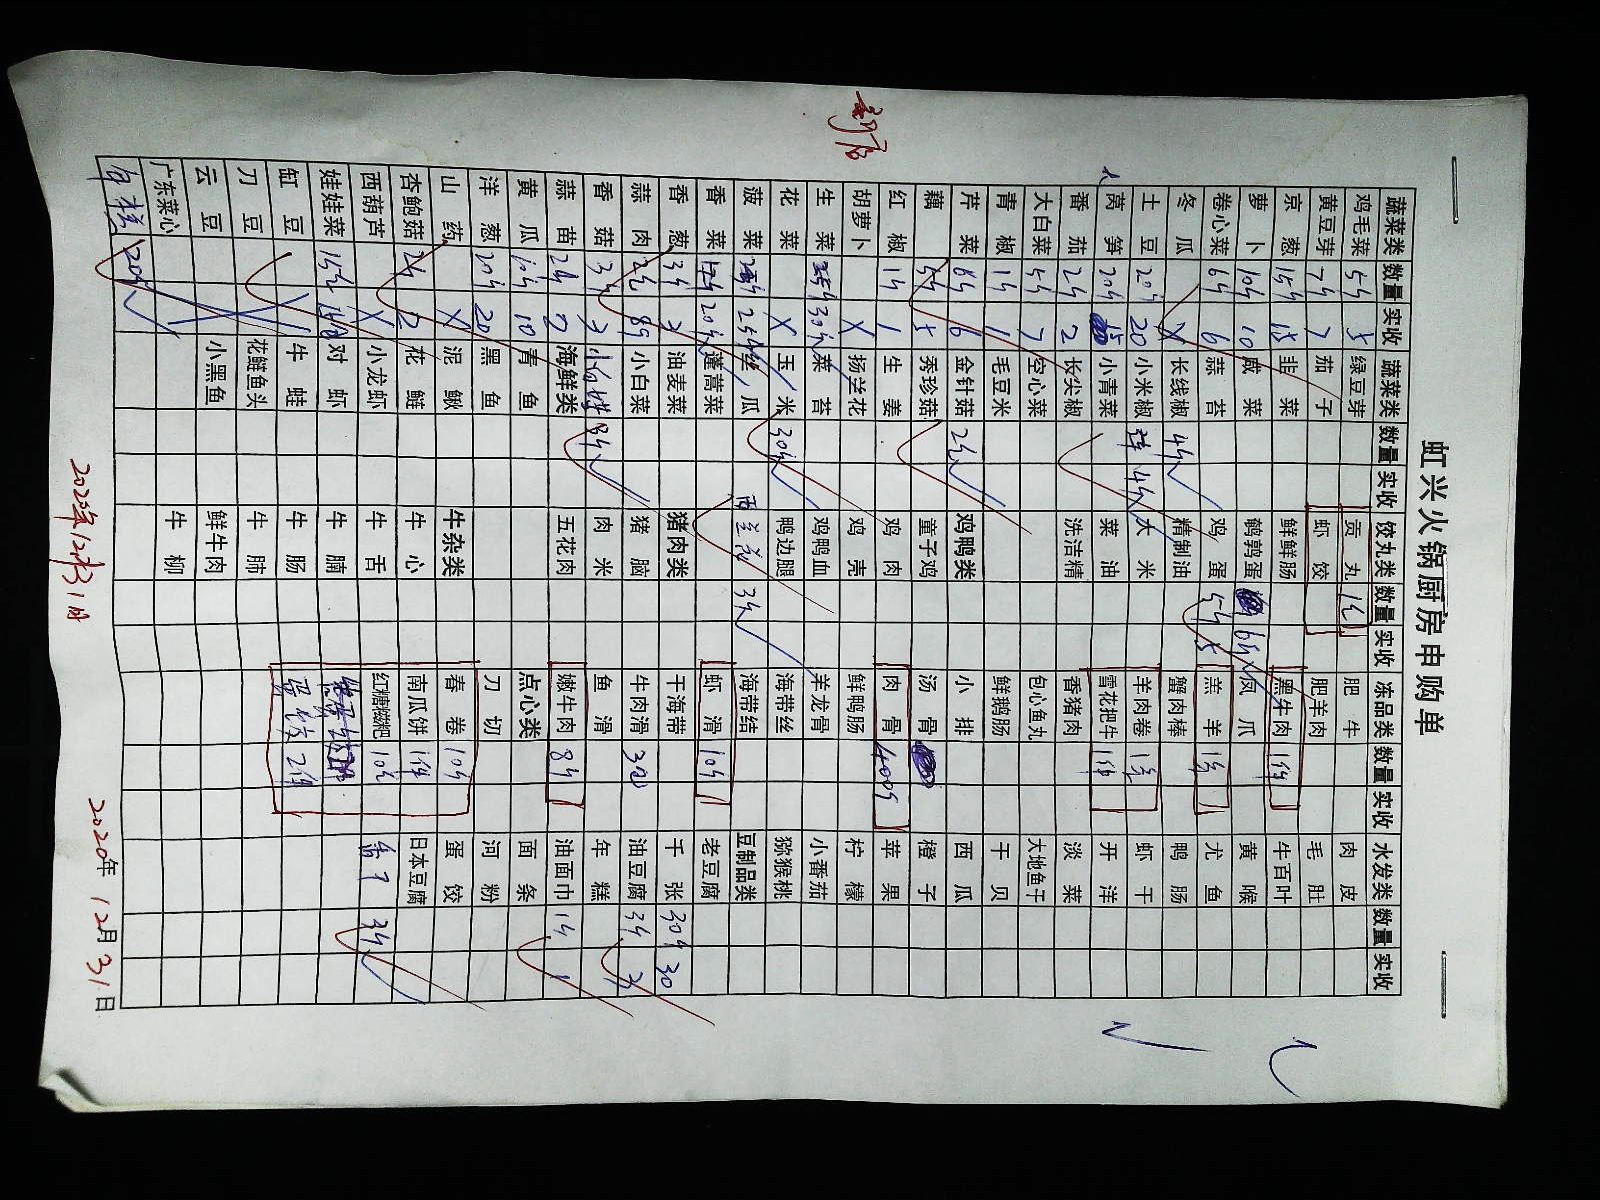 虹兴火锅厨房申购单
蔬菜类 数量 实收 蔬菜类 数量 实收 饺丸类 数量 实收 冻品类 数量 实收 水发类 数量 实收
鸡毛菜 5斤 5 绿豆芽 贡丸 1包 肥牛 肉皮
黄豆芽 7斤 7 茄子 虾饺 肥羊肉 毛肚
京葱 15斤 15 韭菜 鲜鲜肠 黑牛肉 1件 牛百叶
萝卜 10斤 10 咸菜 鹌鹑蛋 6斤 凤爪 黄喉
卷心菜 6斤 6 蒜苔 鸡蛋 5斤 5 羔羊 尤鱼
冬瓜 X 长线椒 4斤 精制油 蟹肉棒 鸭肠
土豆 20斤 20 小米椒 4斤 大米 羊肉卷 虾干
莴笋 20斤 小青菜 菜油 雪花把牛 1件 开洋
番茄 2斤 2 长尖椒 洗洁精 香猪肉 淡菜
大白菜 5斤 7 空心菜 包心鱼丸 大地鱼干
青椒 1斤 1 毛豆米 鲜鹅肠 干贝
芹菜 6斤 6 金针菇 2斤 鸡鸭类 小排 西瓜
藕 5斤 5 秀珍菇 童子鸡 汤骨 橙子
红椒 1斤 1 生姜 鸡肉 肉骨 苹果
胡萝卜 X 扬兰花 鸡壳 鲜鸭肠 柠檬
生菜 30斤 菜苔 鸡鸭血 羊龙骨 小番茄
花菜 X 玉米 30斤 鸭边腿 海带丝 猕猴桃
菠菜 25斤 丝瓜 西兰花 3斤 海带结 豆制品类
香菜 20斤 蓬蒿菜 虾滑 10斤 老豆腐
香葱 3斤 3 油麦菜 猪肉类 干海带 千张 30斤 30
蒜肉 8斤 小白菜 猪脑 牛肉滑 油豆腐 3斤 3
香菇 3斤 3 肉米 鱼滑 年糕
蒜苗 2斤 2 海鲜类 五花肉 嫩牛肉 8斤 油面巾 1斤 1
黄瓜 10斤 10 青鱼 点心类 面条
洋葱 20斤 20 黑鱼 刀切 河粉
山药 X 泥鳅 牛杂类 春卷 10斤 蛋饺
杏鲍菇 2斤 2 花鲢 牛心 南瓜饼 1件 日本豆腐
西葫芦 X 小龙虾 牛舌 红糖糍粑 3斤
娃娃菜 对虾 牛腩
缸豆 牛蛙 牛肠 2件
刀豆 花鲢鱼头 牛肺
云豆 小黑鱼 鲜牛肉
广东菜心 牛柳
20斤
新店
2020年12月31日
2020年12月31日